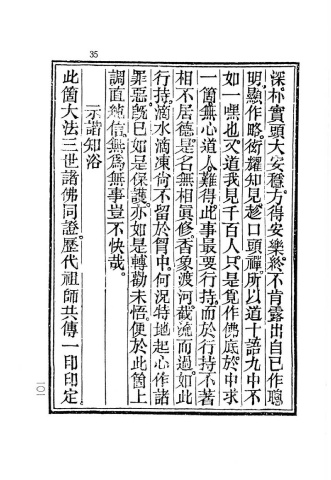 35
深朴實頭大安穩方得安樂終不肯露出自己作聰
明顯作略衒耀知見趂口頭禪所以道十語九中不
如一嘿也又道我見千百人只是覓作佛底於中求
一箇無心道人難得此事最要行持而於行持不著
相不居德是名無相眞修香象渡河截流而過如此
行持滴水滴凍尚不留於胷中何況特地起心作諸
罪惡旣已如是保護亦如是轉勸未悟便於此箇上
調直純信無爲無事豈不快哉
示諧知浴
此箇大法三世諸佛同證歷代祖師共傳一印印定
一〇一